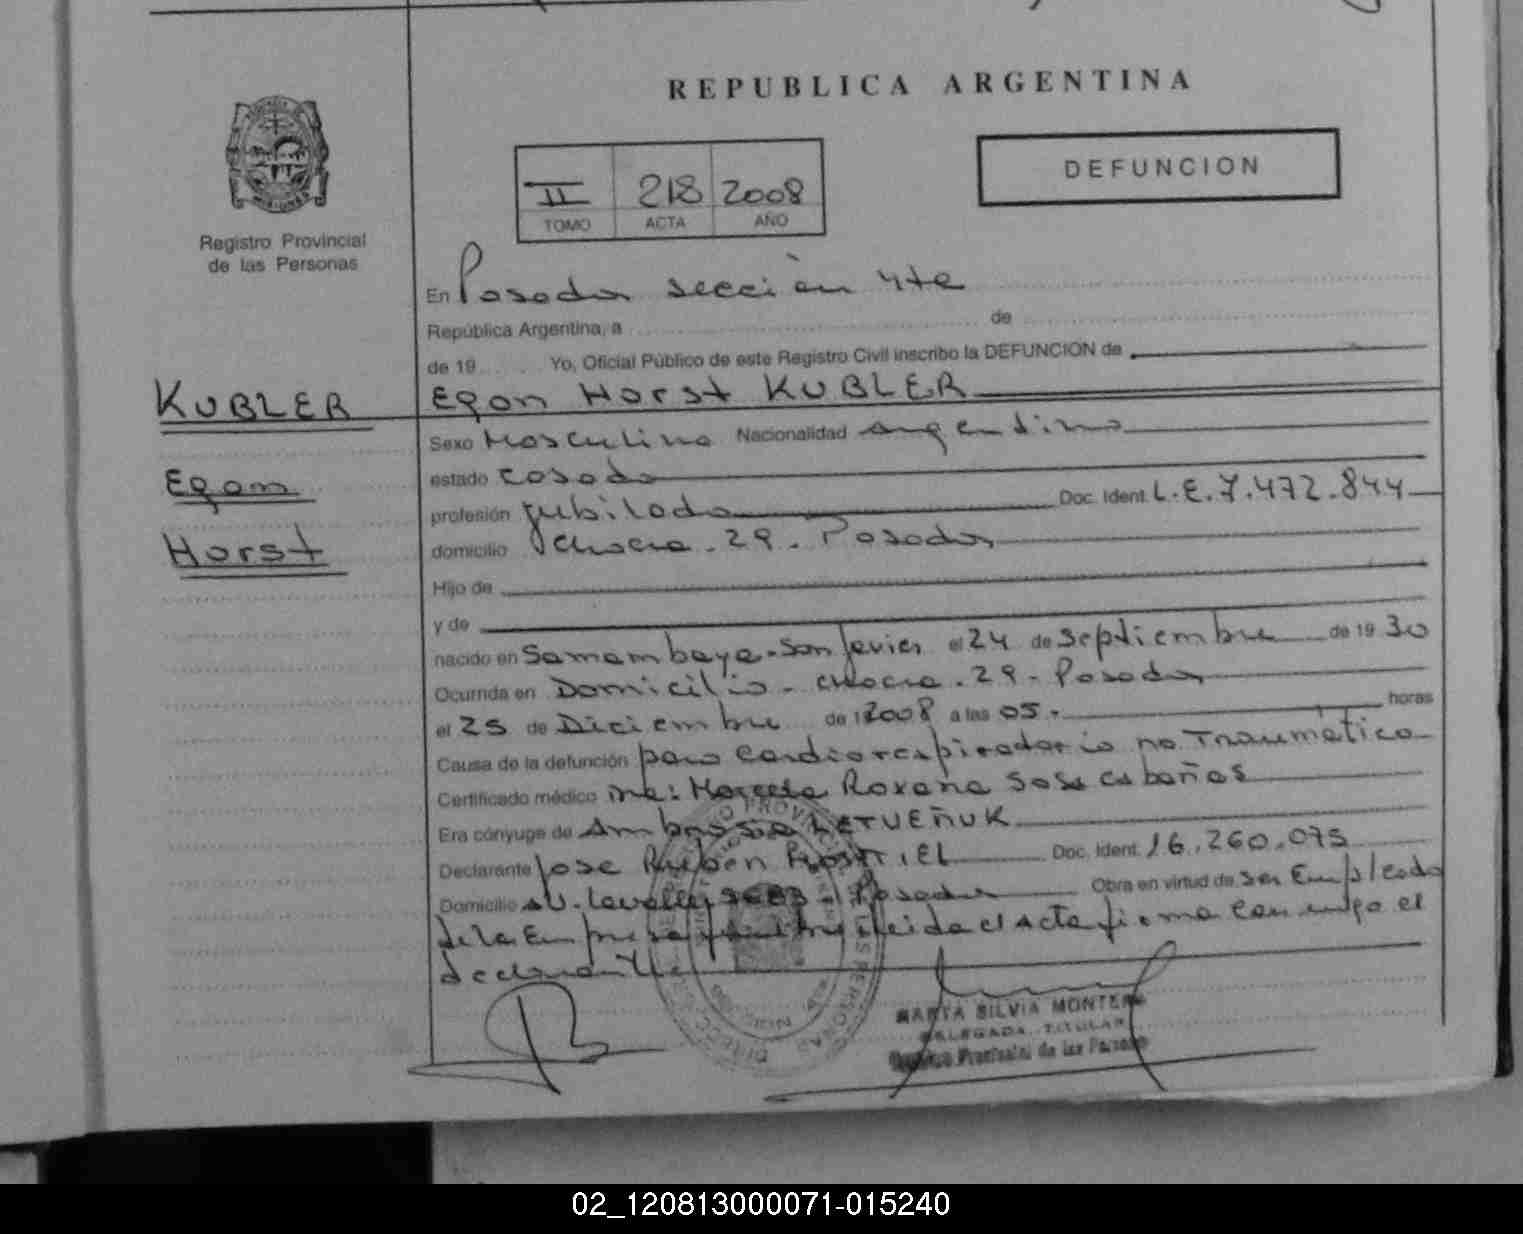 REPUBLICA ARGENTINA
DEFUNCION
II 218 2008
TOMO ACTA AÑO
Registro Provincial
de las Personas
En Posadas sección 4te
República Argentina, a de
de 19 Yo, Oficial Público de este Registro Civil inscribo la DEFUNCION de
KUBLER
Egon
Horst
Egon Horst KUBLER
Sexo Masculino Nacionalidad Argentino
estado casado
profesión jubilado Doc. Ident. L.E. 7.472.844
domicilio chacra. 29. Posadas
Hijo de
y de
nacido en Samambaya-San Javier el 24 de septiembre de 19 30
Ocurrida en Domicilio - chacra. 29 - Posadas
el 25 de Diciembre de 1 2008 a las 05. horas
Causa de la defunción paro cardiorespiratorio no Traumático
Certificado médico Roxana Sosa cabañas
Era cónyuge de Ambrosia LETUEÑUK
Declarante Jose Ruben Doc. Ident. 16.260.075
Domicilio Av. Lavalle Posadas Obra en virtud de ser Empleado
de la Empresa leida el Acta firma conmigo el
declarante
MARTA SILVIA MONTERO
DELEGADA TITULAR
Registro Provincial de las Personas
02_120813000071-015240